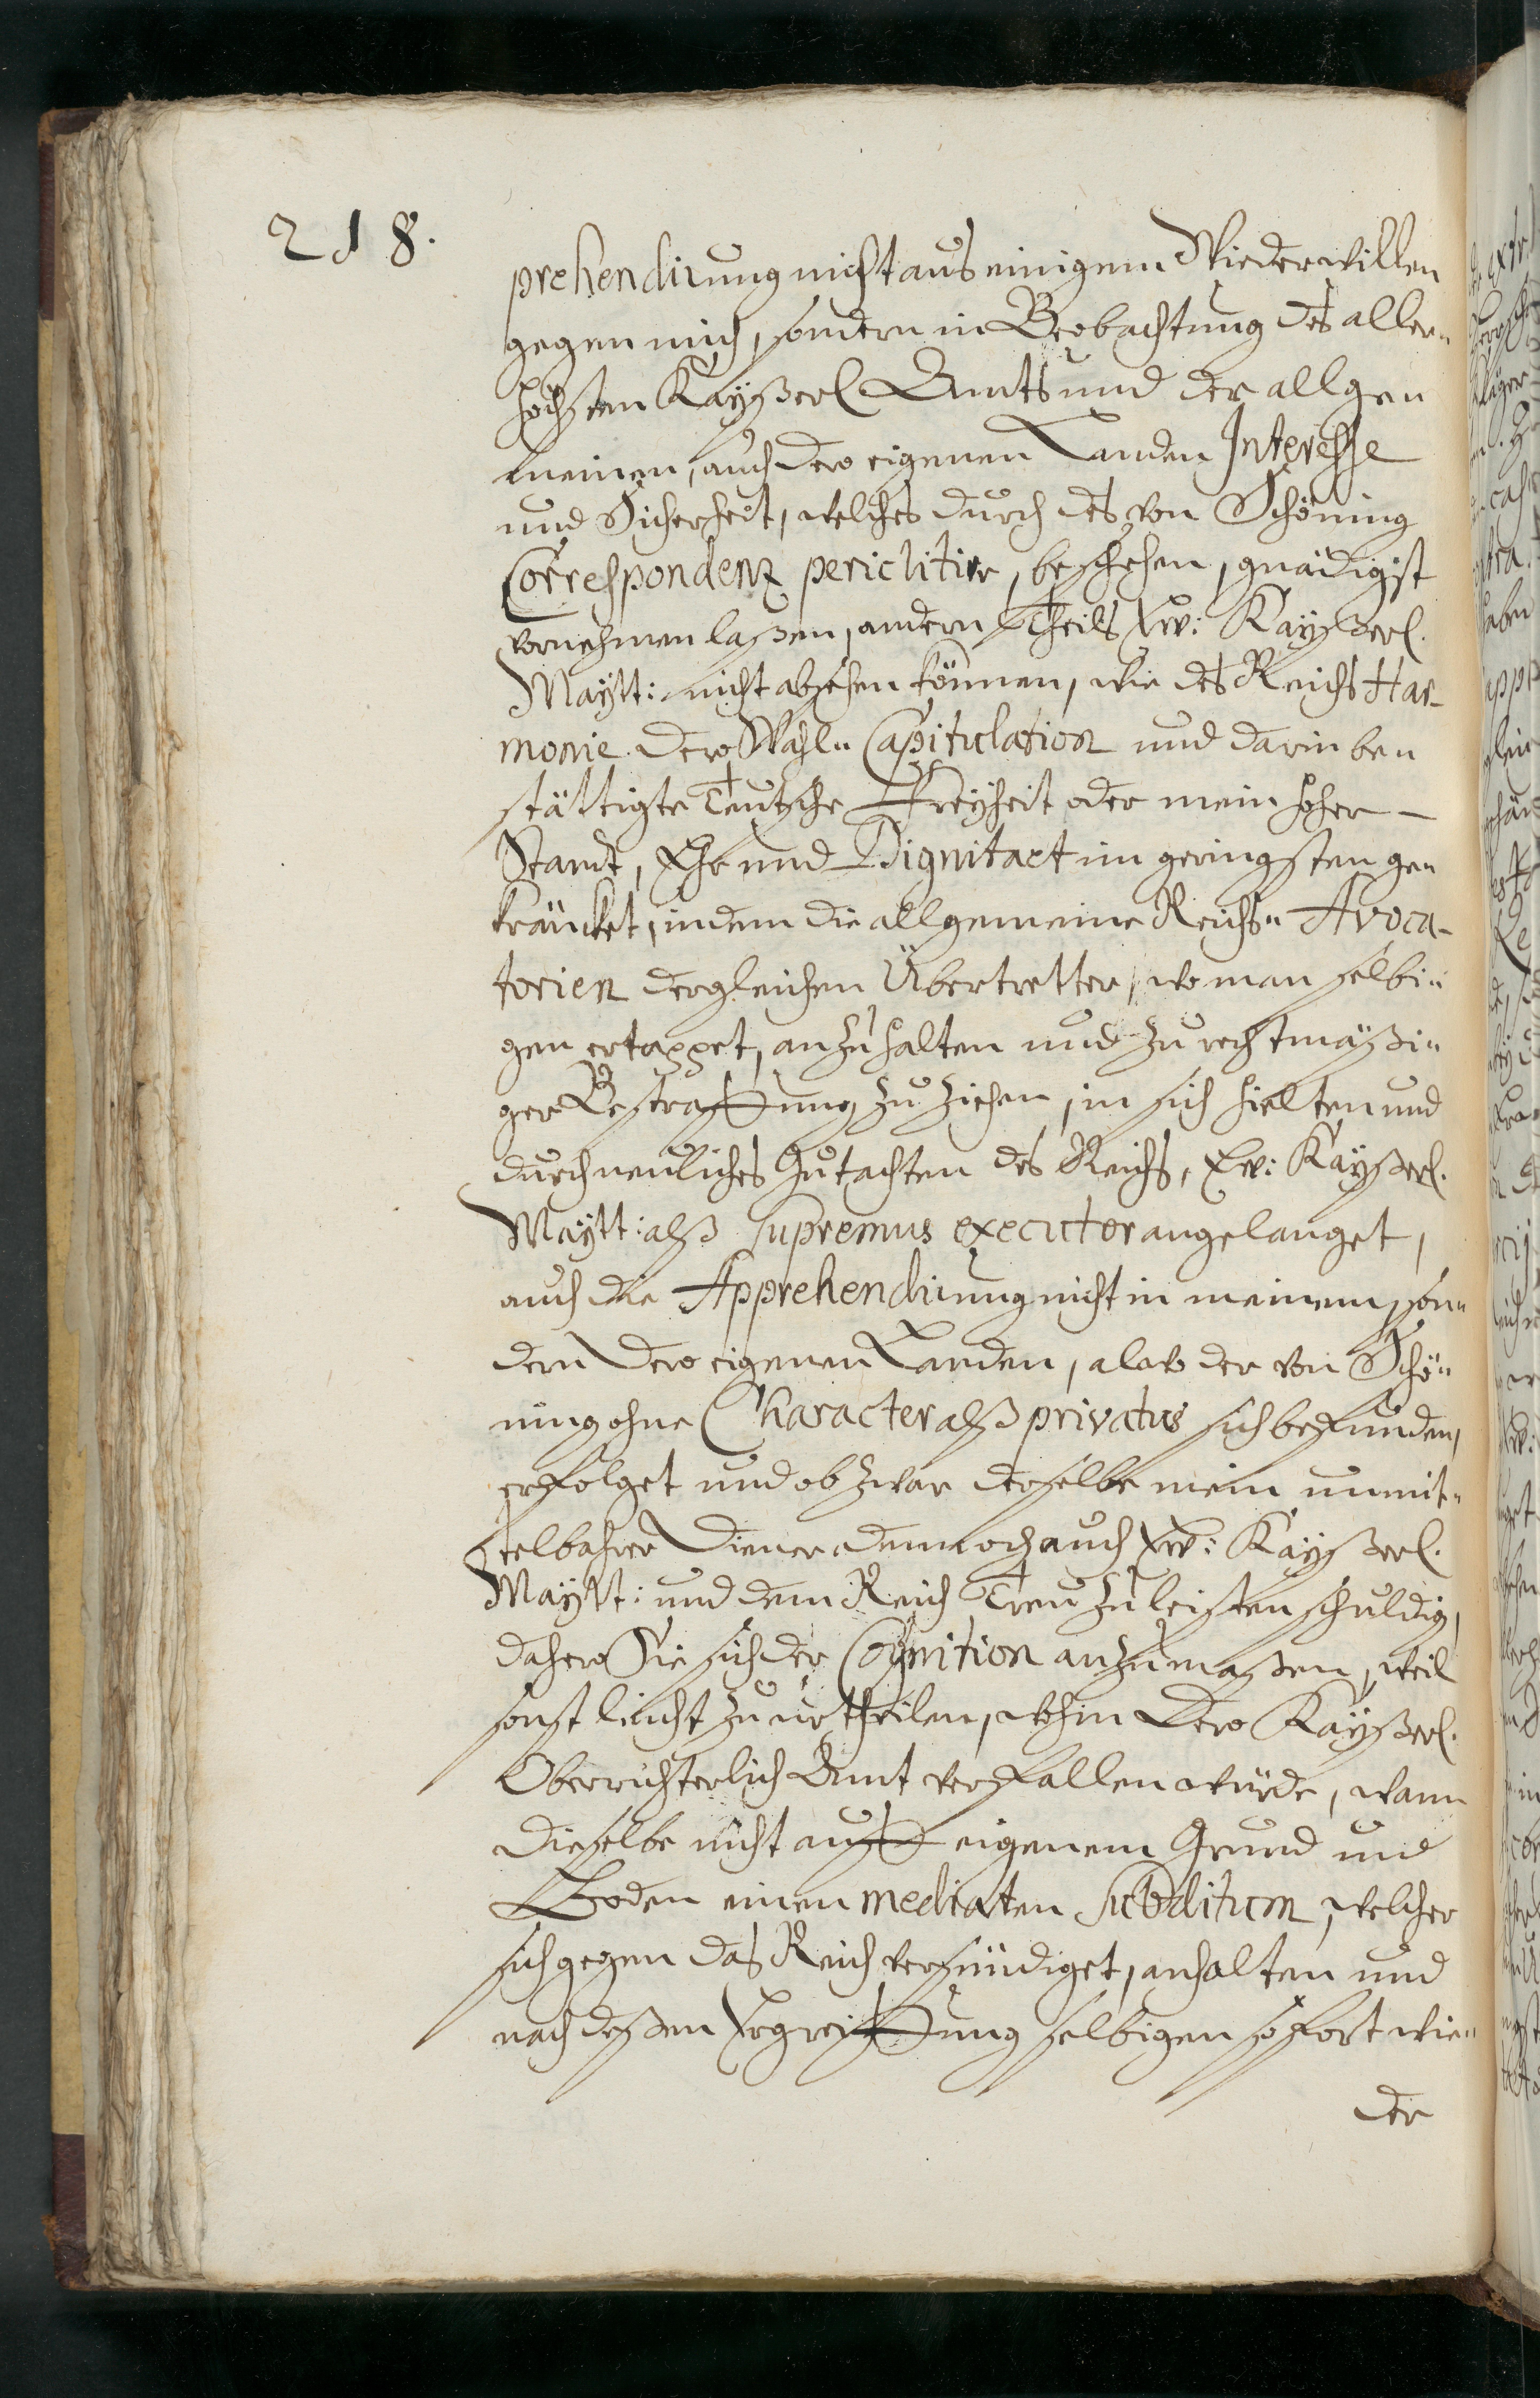 218.
prehendirung nicht aus einigem Wiederwillen
gegen mich, sondern in Beobachtung des aller-
höchsten Kayßerl Ambts und der allge-
meinen, auch dero eigenen Landen Interesse
und Sicherheit, welches durch des von Schöning
Correspondenz periclitire, beschehen, gnädigst
vornehmen laßen, andern Theils Ew: Kayßerl.
Maytt: nicht absehen können, wie des Reichs Har-
monie dero Wahl- Capitulation und darin be-
stättigte Teutsche Freyheit oder mein hoher
Standt, Ehr und Dignitaet im geringsten ge-
kräncket, indem die allgemeine Reichs- Avoca-
torien dergleichen Übertretter, wo man selbi-
gen ertappet, anzuhalten und zu rechtmäßi-
ger Bestraffung zu ziehen, in sich hielten und
durch neuliches Gutachten des Reichs, Ew: Kayßerl.
Maytt: alß supremus executor angelanget,
auch die Apprehendirung nicht in meinem, son-
dern dero eigenen Landen, alwo der von Schö-
ning ohne Character alß privatus sich befunden,
erfolget und ob zwar derselbe mein unmit-
telbahrer Diener dennoch auch Ew: Kayßerl.
Maytt: und dem Reich Treu zu leisten schuldig,
dahero Sie sich der Cognition anzumaßen, weil
sonst leicht zu urtheilen, wohin dero Kayßerl.
Oberrichterlich Amt verfallen würde, wann
dieselbe nicht auff eigenem Grund und
Boden einen mediaten subditum, welcher
sich gegen das Reich versündiget, anhalten und
nach deßen Ergreiffung selbigen sofort wie-
der